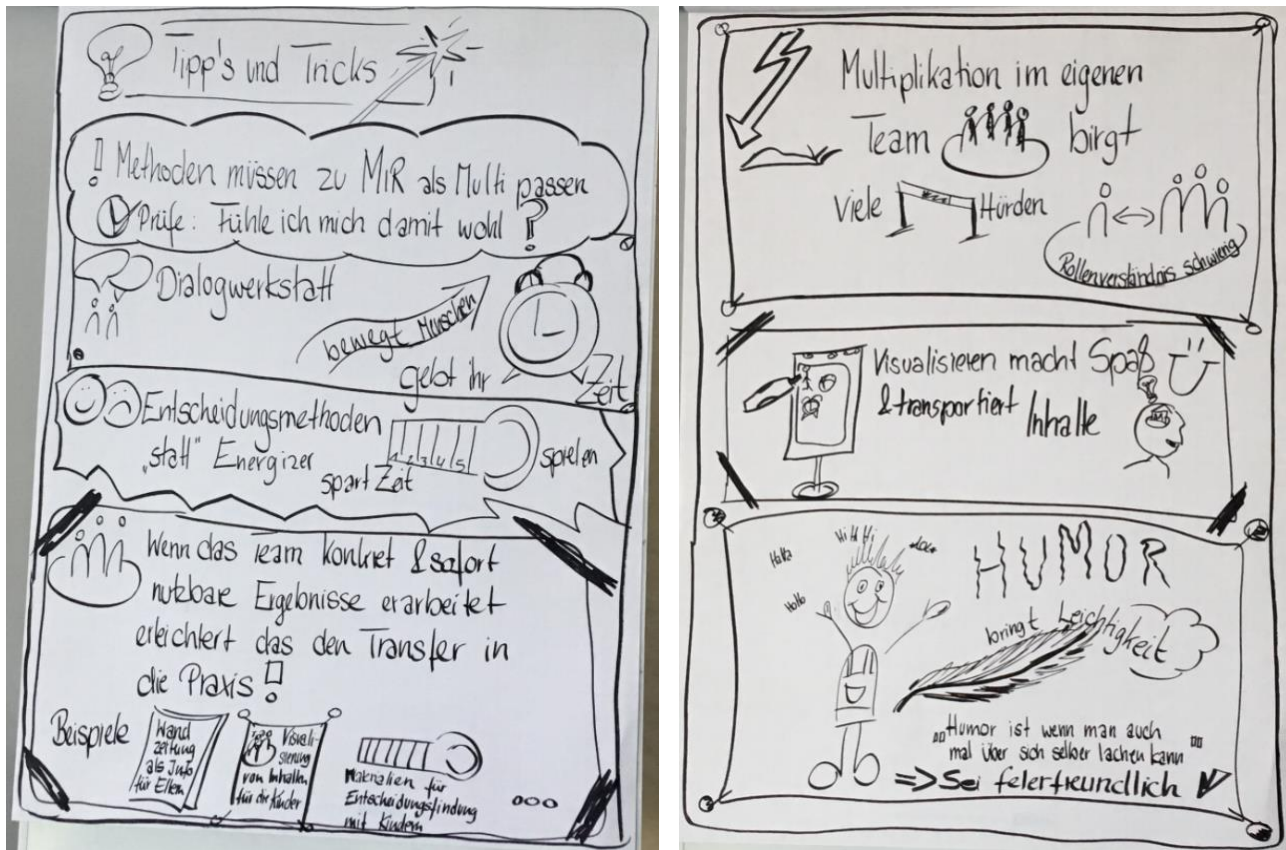 Tipp's und Tricks
! Methoden müssen zu MiR als Multi passen
Prüfe: Fühle ich mich damit wohl ?
Dialogwerkstatt
bewegt Menschen
gebt ihr Zeit
Entscheidungsmethoden
„statt" Energizer
1 2 3 4 5
spielen
spart Zeit
Wenn das Team konkret & sofort
nutzbare Ergebnisse erarbeitet
erleichtert das den Transfer in
die Praxis !
Beispiele
Wand
zeitung
als Info
für Eltern
Visuali-
sierung
von Inhalten
für die Kinder
Materialien für
Entscheidungsfindung
mit Kindern
ooo
Multiplikation im eigenen
Team birgt
Viele Hürden
Rollenverständnis schwierig
Visualisieren macht Spaß
& transportiert Inhalte
Haha
Hi Hi Hi
Hoho
HUMOR
bringt Leichtigkeit
"Humor ist wenn man auch
mal über sich selber lachen kann"
=> Sei felerfreundlich